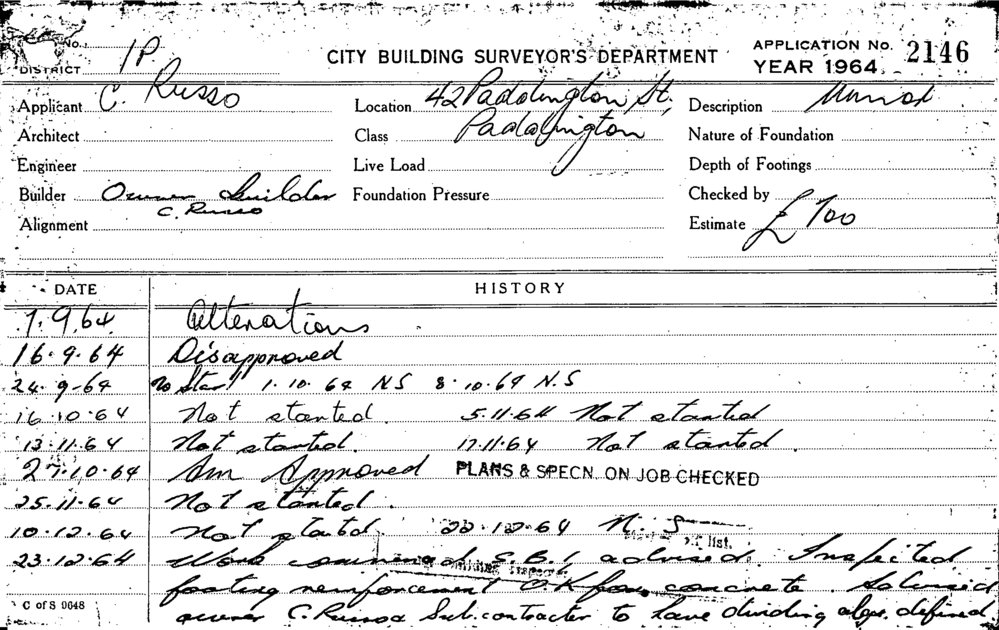 No.
DISTRICT 1P
CITY BUILDING SURVEYOR'S DEPARTMENT
APPLICATION No. 2146
YEAR 1964
Applicant C. Russo
Location 42 Paddington St,
Description Minor
Architect
Class Paddington
Nature of Foundation
Engineer
Live Load
Depth of Footings
Builder Owner Builder
C. Russo
Foundation Pressure
Checked by
Alignment
Estimate £ 700
DATE HISTORY
7.9.64 Alterations
16.9.64 Disapproved
24.9.64 No Start 1.10.64 N S 8.10.64 N.S
16.10.64 Not started 5.11.64 Not started
13.11.64 Not started. 17.11.64 Not started
27.10.64 Am Approved PLANS & SPECN. ON JOB CHECKED
25.11.64 Not started.
10.12.64 Not started 22.12.64 N. S
list.
23.12.64 Work commenced advised. Inspected
footing reinforcement O.K for concrete. Advised
owner C. Russo & Sub. contractor to have dividing defined
C of S 9648